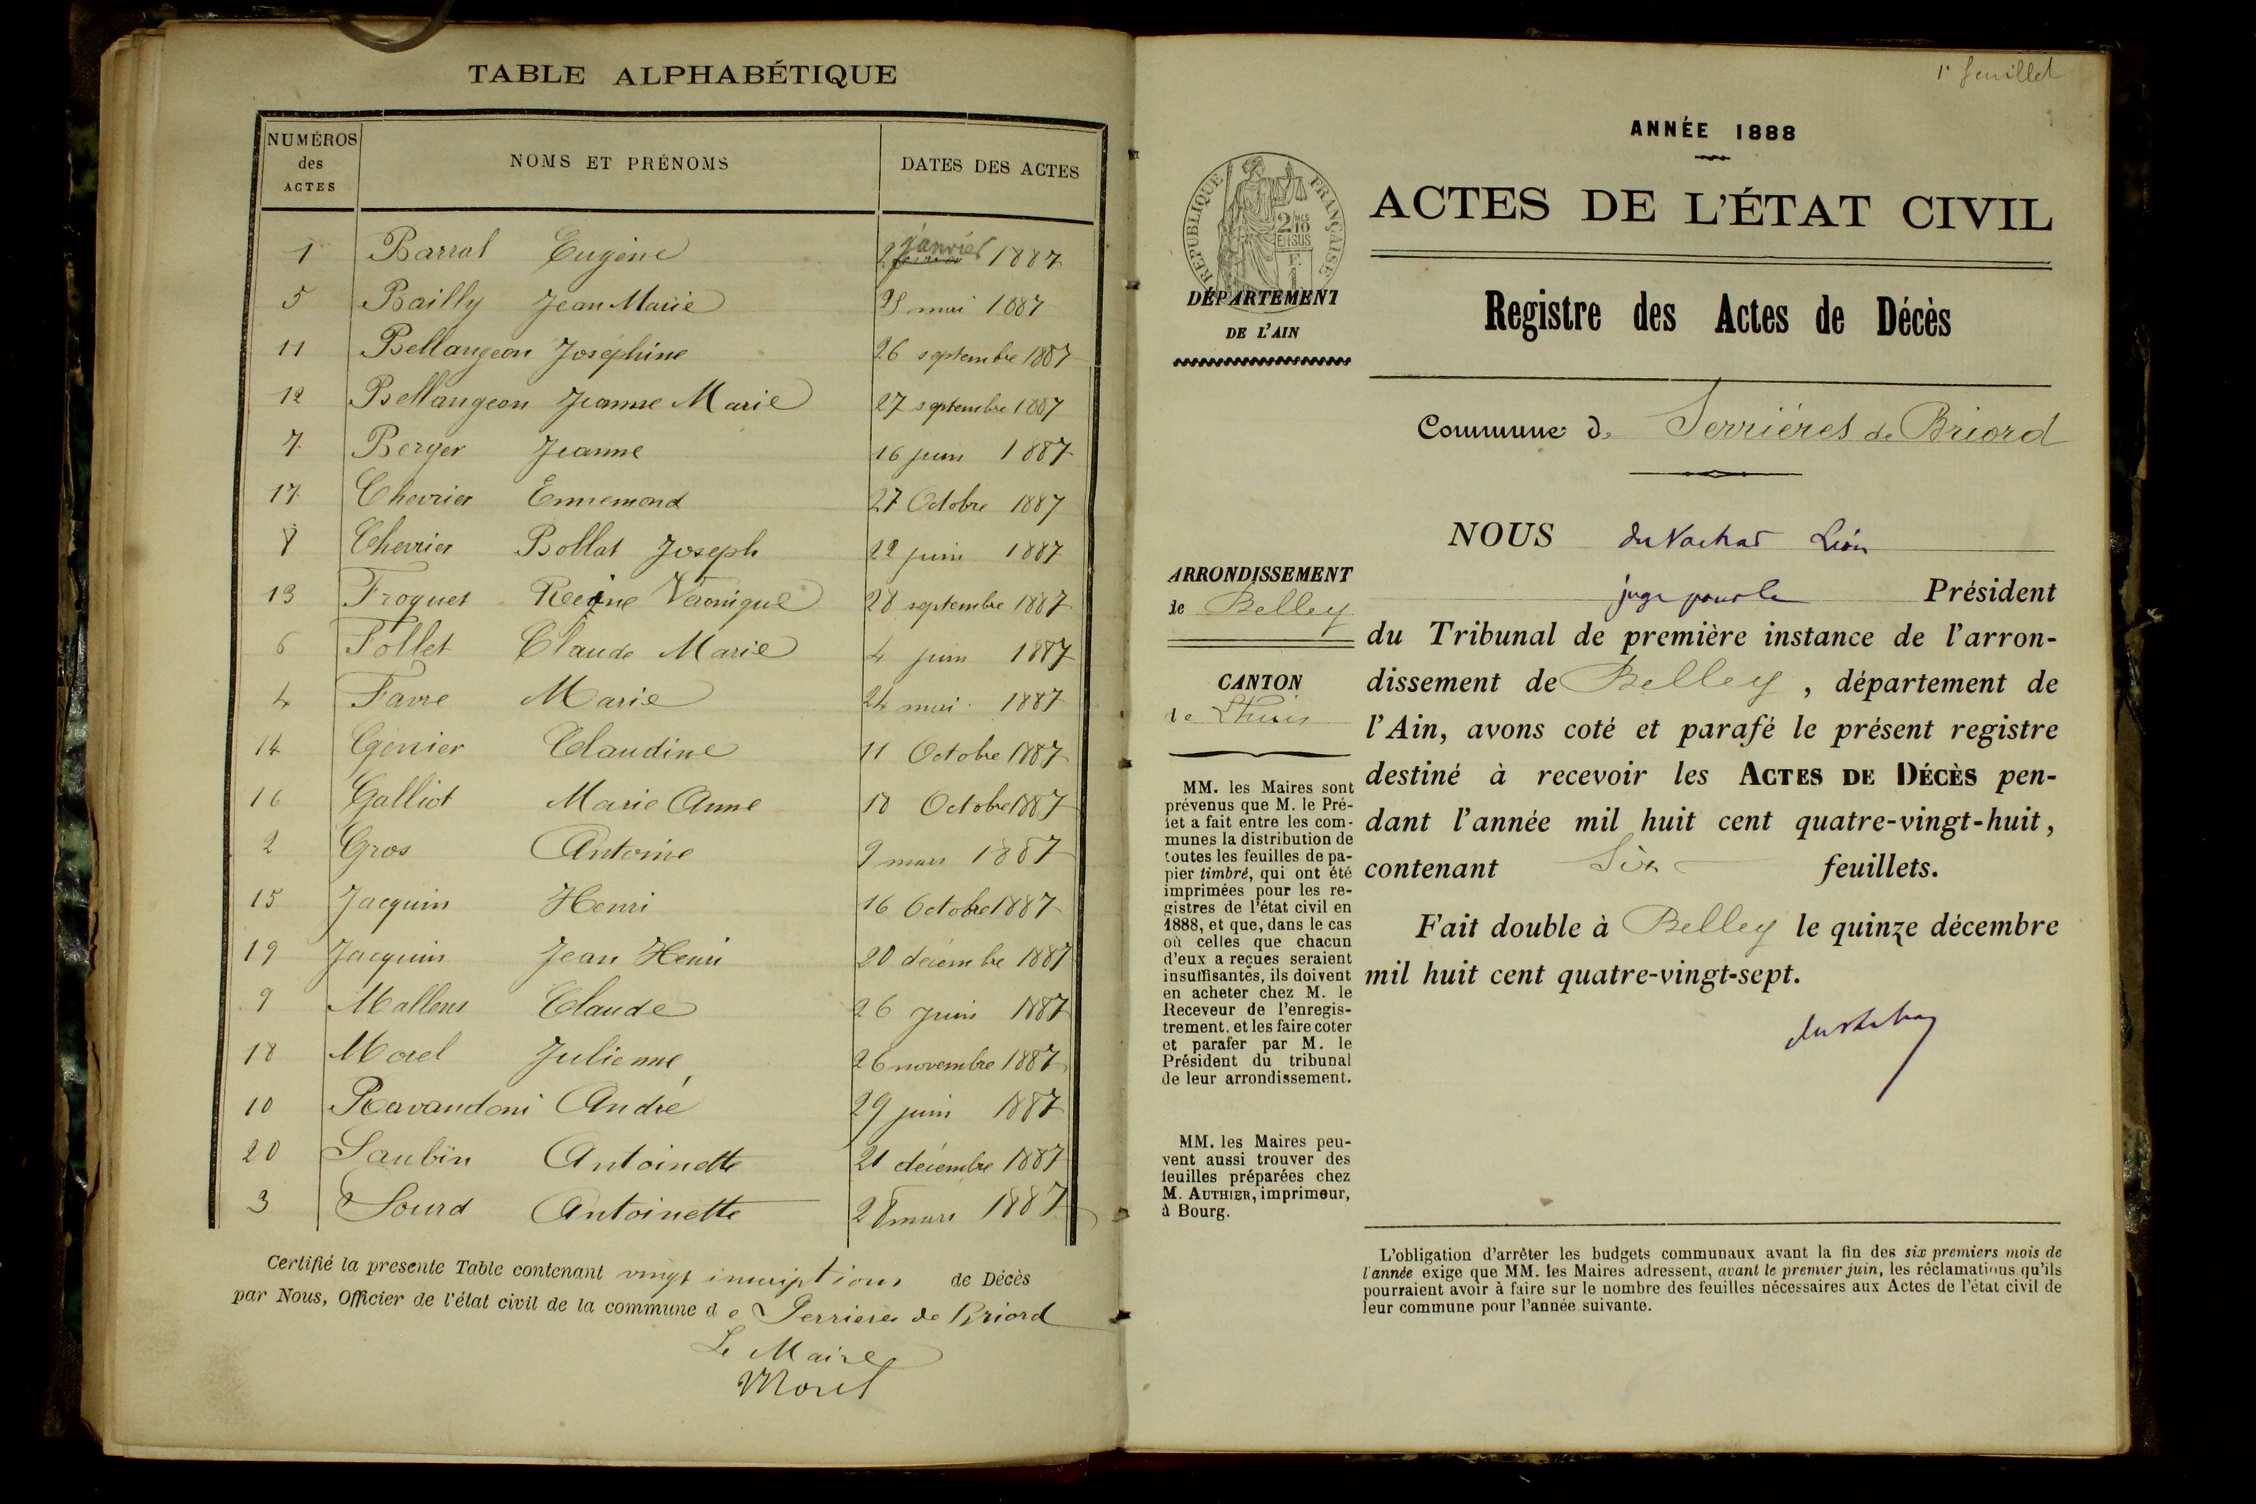 TABLE ALPHABÉTIQUE
NUMÉROS des ACTES NOMS ET PRÉNOMS DATES DES ACTES
1 Barral Eugène 2 janvier 1887
5 Bailly Jean Marie 25 mai 1887
11 Bellangeon Joséphine 26 septembre 1887
12 Bellangeon Jeanne Marie 27 septembre 1887
7 Berger Jeanne 16 juin 1887
17 Chevrier Ennemond 27 Octobre 1887
8 Chevrier Bollat Joseph 22 juin 1887
13 Froquet Reine Véronique 28 septembre 1887
6 Follet Claude Marie 4 juin 1887
4 Favre Marie 24 mai 1887
14 Genier Claudine 11 Octobre 1887
16 Galliot Marie Anne 18 Octobre 1887
2 Gros Antoine 9 mars 1887
15 Jacquin Henri 16 Octobre 1887
19 Jacquin Jean Henri 20 décembre 1887
9 Mallens Claude 26 Juin 1887
18 Morel Julienne 26 novembre 1887
10 Ravandoni André 29 juin 1887
20 Saubin Antoinette 21 décembre 1887
3 Sourd Antoinette 28 mars 1887
Certifié la presente Table contenant vingt inscriptions de Décès
par Nous, Officier de l'état civil de la commune de Serrières de Briord
Le Maire
Morel
1r feuillet
ANNÉE 1888
RÉPUBLIQUE FRANÇAISE
2/10 EN SUS
ACTES DE L'ÉTAT CIVIL
DÉPARTEMENT
DE L'AIN
Registre des Actes de Décès
Commune de Serrières de Briord
ARRONDISSEMENT
de Belley
CANTON
de Lhuis
MM. les Maires sont
prévenus que M. le Pré-
fet a fait entre les com-
munes la distribution de
toutes les feuilles de pa-
pier timbré, qui ont été
imprimées pour les re-
gistres de l'état civil en
1888, et que, dans le cas
où celles que chacun
d'eux a reçues seraient
insuffisantes, ils doivent
en acheter chez M. le
Receveur de l'enregis-
trement, et les faire coter
et parafer par M. le
Président du tribunal
de leur arrondissement.
MM. les Maires peu-
vent aussi trouver des
feuilles préparées chez
M. AUTHIER, imprimeur,
à Bourg.
NOUS Léon
juge pour le Président
du Tribunal de première instance de l'arron-
dissement de Belley, département de
l'Ain, avons coté et parafé le présent registre
destiné à recevoir les ACTES DE DÉCÈS pen-
dant l'année mil huit cent quatre-vingt-huit,
contenant Six feuillets.
Fait double à Belley le quinze décembre
mil huit cent quatre-vingt-sept.
L'obligation d'arrêter les budgets communaux avant la fin des six premiers mois de
l'année exige que MM. les Maires adressent, avant le premier juin, les réclamations qu'ils
pourraient avoir à faire sur le nombre des feuilles nécessaires aux Actes de l'état civil de
leur commune pour l'année suivante.